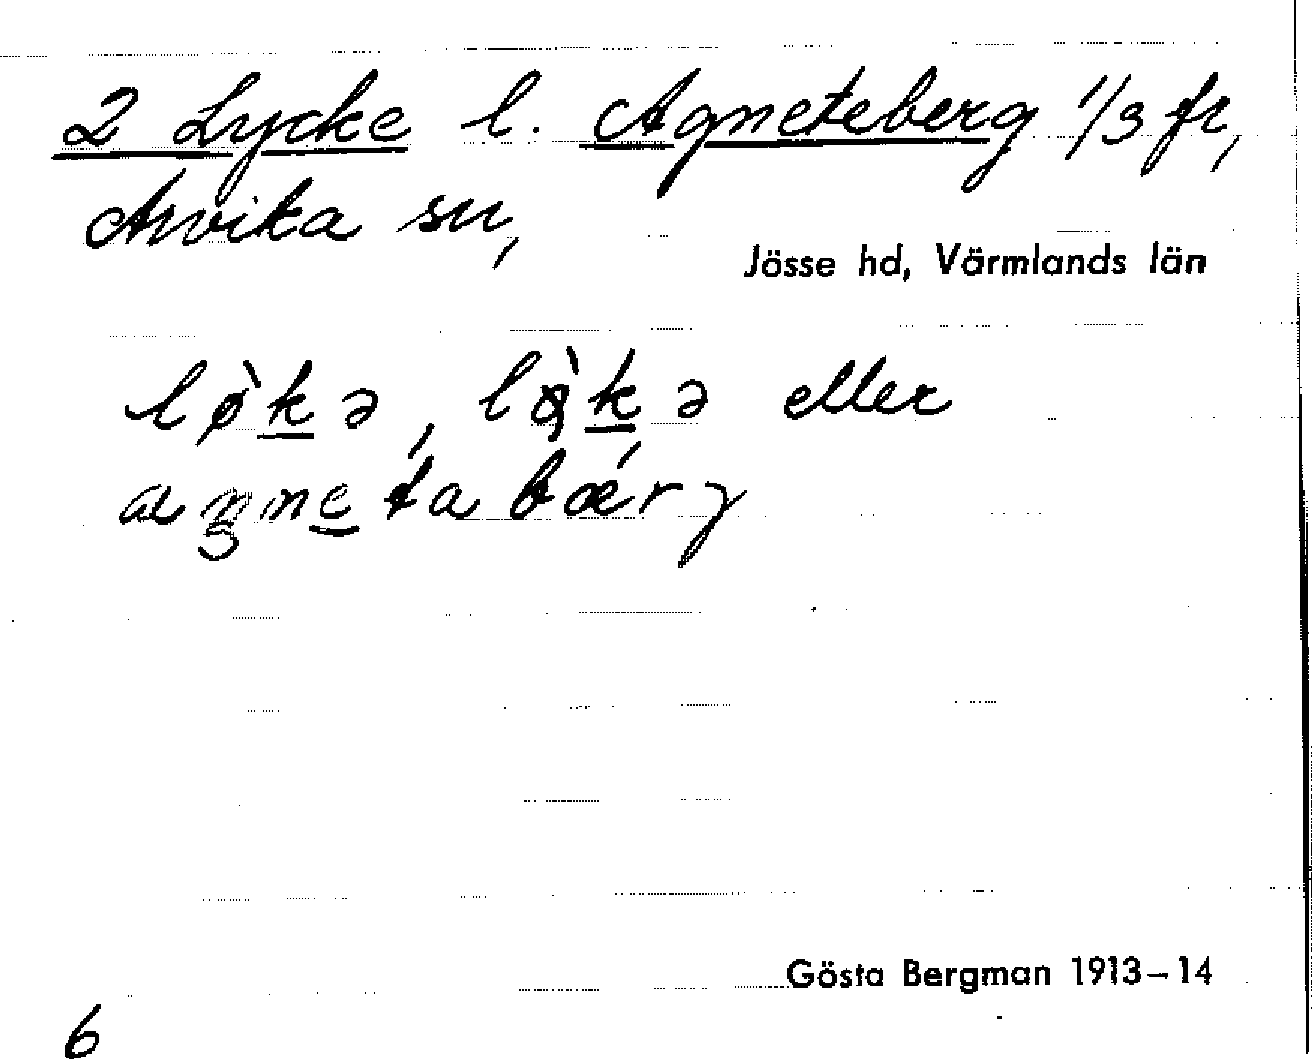 2 Lycke l. Agneteberg 1/3 fr,
Arvika sn,
Jösse hd, Värmlands län
lø̀kə, lø̀kə eller
aŋneta bǽrγ
Gösta Bergman 1913–14
6